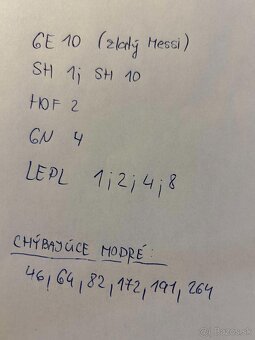 GE 10 (zlatý Messi)
SH 1; SH 10
HOF 2
GN 4
LEPL 1; 2; 4; 8
CHÝBAJÚCE MODRÉ:
46, 64, 82, 172, 191, 264
Bazos.sk